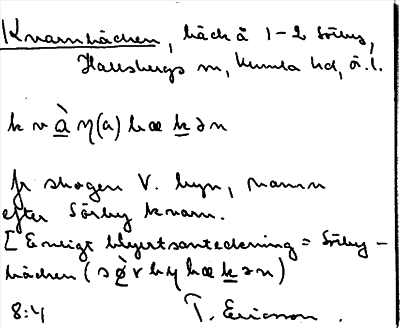 Kvarnbäcken, bäck å 1-2 Sörby,
Hallsbergs sn, Kumla hd, ö.l.
k v à η(a) bæ k ə n
fr skogen V. byn, namn
efter Sörby kvarn.
[Enligt blyertsanteckning = Sörby-
bäcken (s ø̀ r b y bæ k ə n)
8:4 T. Ericsson.